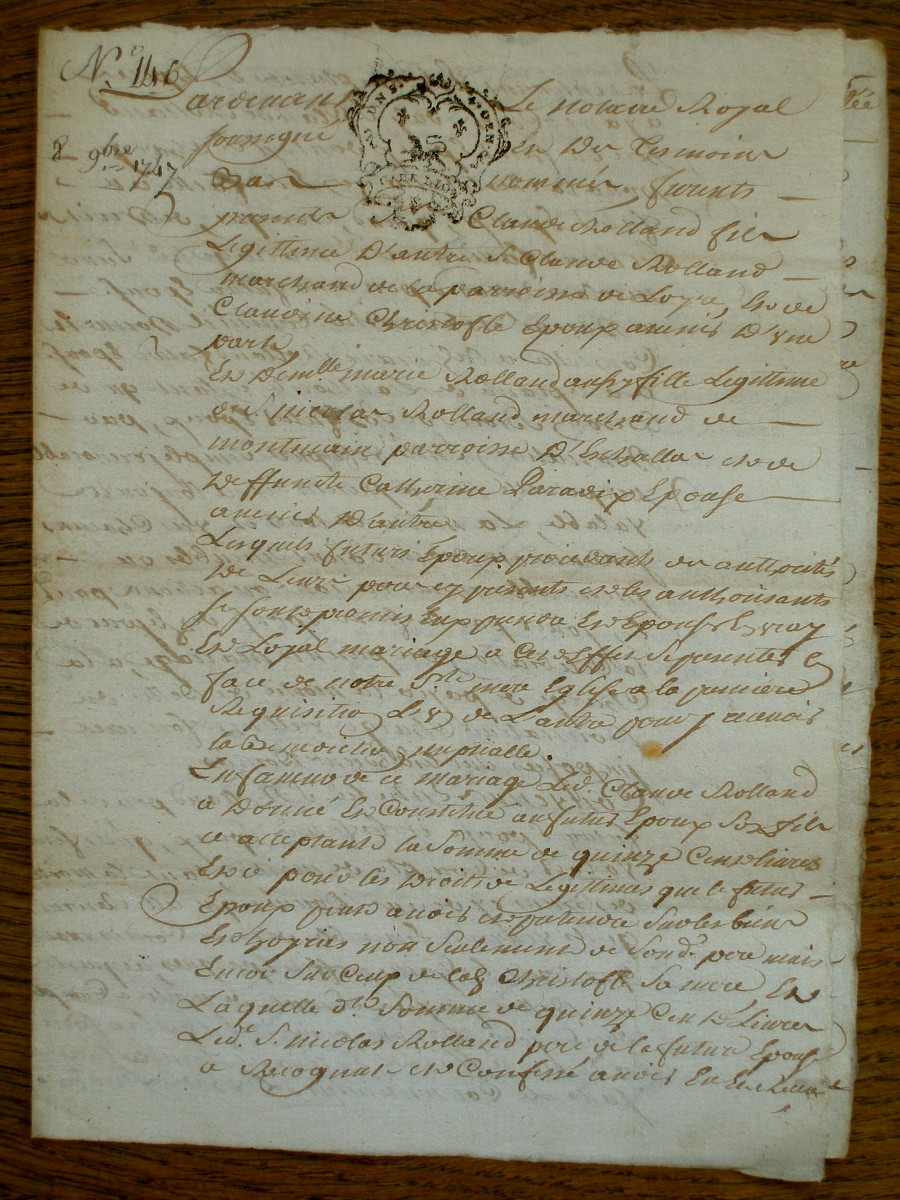 N.° 1146
8 9bre 1747
Pardevant Le notaire Royal
soussigné Et Des Temoins
Bas nommés furents
presents S. Claude Rolland fils
Legittime D'autre S. Claude Rolland
marchand de la parroisse de Loyre, Et de
Claudine Christofle Epoux amiés D'une
part,
Et D'emlle marie Rolland aussy fille Legittime
de S. nicolas Rolland marchand de
montmain parroisse D' Et de
Deffuncte Catherine Paradix Epouse
amiés D'autre
Lesquels futurs Epoux procedants de authorités
De Leurs pere et parents et les authorisants
se sont promis Epouser En vray
Et Loyal mariage a Cet Effet Se presenter En
face de notre Ste mere Eglise a la premiere
Requisition L'un de L'autre pour y recevoir
la Benediction nuptialle.
En faveur de ce mariage Led. Claude Rolland
a Donné Et Constitué au futur Epoux Son fils
ce acceptant la Somme de quinze Cent Livres
Et ce pour les Droits de Legitimes que le futur
Epoux peut avoir et pretendre Sur les biens
Et hoyries non Seulement de Sond. pere mais
Encor Sur Ceux de lad. Christofle Sa mere, Et
Laquelle d. Somme de quinze Cent Livres
Led. S. nicolas Rolland pere de la future Epouse
a Recognut et Confessé avoir Eu Et Receu